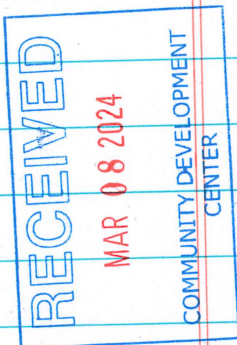 RECEIVED
MAR 08 2024
COMMUNITY DEVELOPMENT
CENTER